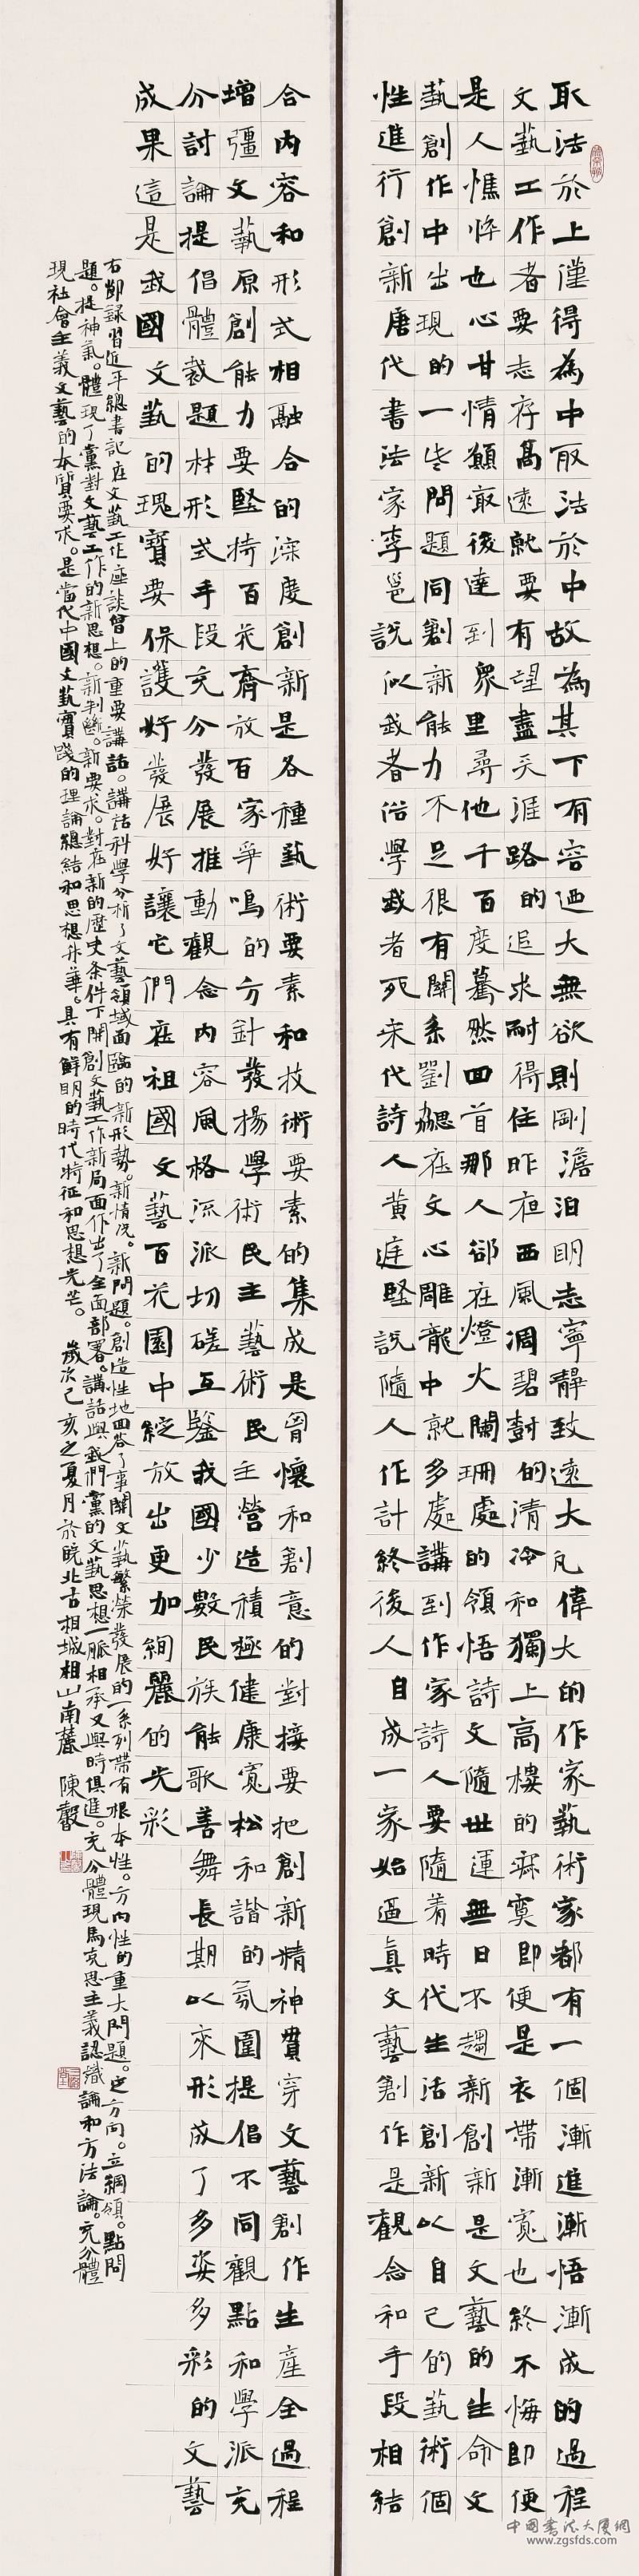 取法於上僅得為中取法於中故為其下有容迺大無欲則剛澹泊明志寧靜致遠大凡偉大的作家藝術家都有一個漸進漸悟漸成的過程
文藝工作者要志存高遠就要有望盡天涯路的追求耐得住昨夜西風凋碧樹的清冷和獨上高樓的寂寞即便是衣帶漸寬也終不悔即便
是人憔悴也心甘情願最後達到眾里尋他千百度驀然回首那人卻在燈火闌珊處的領悟詩文隨世運無日不趨新創新是文藝的生命文
藝創作中出現的一些問題同創新能力不足很有關系劉勰在文心雕龍中就多處講到作家詩人要隨着時代生活創新以自己的藝術個
性進行創新唐代書法家李邕說似我者俗學我者死宋代詩人黃庭堅說隨人作計終後人自成一家始逼真文藝創作是觀念和手段相結
合內容和形式相融合的深度創新是各種藝術要素和技術要素的集成是胸懷和創意的對接要把創新精神貫穿文藝創作生產全過程
增彊文藝原創能力要堅持百花齊放百家爭鳴的方針發揚學術民主藝術民主營造積極健康寬松和諧的氛圍提倡不同觀點和學派充
分討論提倡體裁題材形式手段充分發展推動觀念內容風格流派切磋互鑒我國少數民族能歌善舞長期以來形成了多姿多彩的文藝
成果這是我國文藝的瑰寶要保護好發展好讓它們在祖國文藝百花園中綻放出更加絢麗的光彩
右節錄習近平總書記在文藝工作座談會上的重要講話。講話科學分析了文藝領域面臨的新形勢。新情況。新問題。創造性地回答了事關文藝繁榮發展的一系列帶有根本性。方向性的重大問題。定方向。立綱領。點問
題。提神氣。體現了黨對文藝工作的新思想。新判斷。新要求。對在新的歷史条件下開創文藝工作新局面作出了全面部署。講話與我們黨的文藝思想一脈相承又與時俱進。充分體現馬克思主義認識論和方法論。充分體
現社會主義文藝的本質要求。是當代中國文藝實踐的理論總結和思想升華。具有鮮明的時代特征和思想光芒。 歲次己亥之夏月於皖北古相城相山南麓 陳
中國書法大厦網
www.zgsfds.com